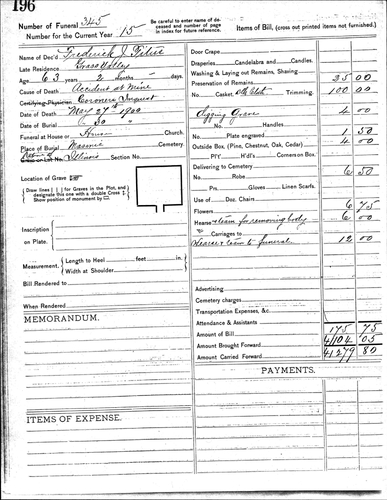 196
Number of Funeral 345
Number for the Current Year 15
Be careful to enter name of deceased and number of page in index for future reference.
Name of Dec'd. Frederick J.
Late Residence Grass Valley
Age 63 years 2 months - days.
Cause of Death Accident at Mine
Certifying Physician Coroners Inquest
Date of Death May 27th 1900
Date of Burial " 30 "
Funeral at House or Home Church.
Place of Burial Masonic Cemetery.
Grave or Lot No. Illinois Section No.
Location of Grave
Draw lines for Graves in the Plot, and designate this one with a double Cross
Show position of monument by
Inscription
on Plate.
Measurement, Length to Heel feet in.
Width at Shoulder
Bill Rendered to
When Rendered
MEMORANDUM.
ITEMS OF EXPENSE.
Items of Bill, (cross out printed items not furnished.)
Door Crape
Draperies Candelabra and Candles.
Washing & Laying out Remains, Shaving
Preservation of Remains 25 00
No. Casket Trimming, 100 00
No. Handles
Digging Grave 4 00
Plate engraved 1 50
Outside Box, (Pine, Chestnut, Oak, Cedar) 4 00
PlY H'dl's Corners on Box.
Delivering to Cemetery
No. Robe 6 50
Prs. Gloves Linen Scarfs.
Use of Doz. Chairs
Flowers 6 75
Hearse & team for removing body 6 00
Carriages to
Hearse & team to funeral 12 00
Advertising
Cemetery charges
Transportation Expenses, &c
Attendance & Assistants
Amount of Bill 175 75
Amount Brought Forward 41104 05
Amount Carried Forward 41279 80
PAYMENTS.